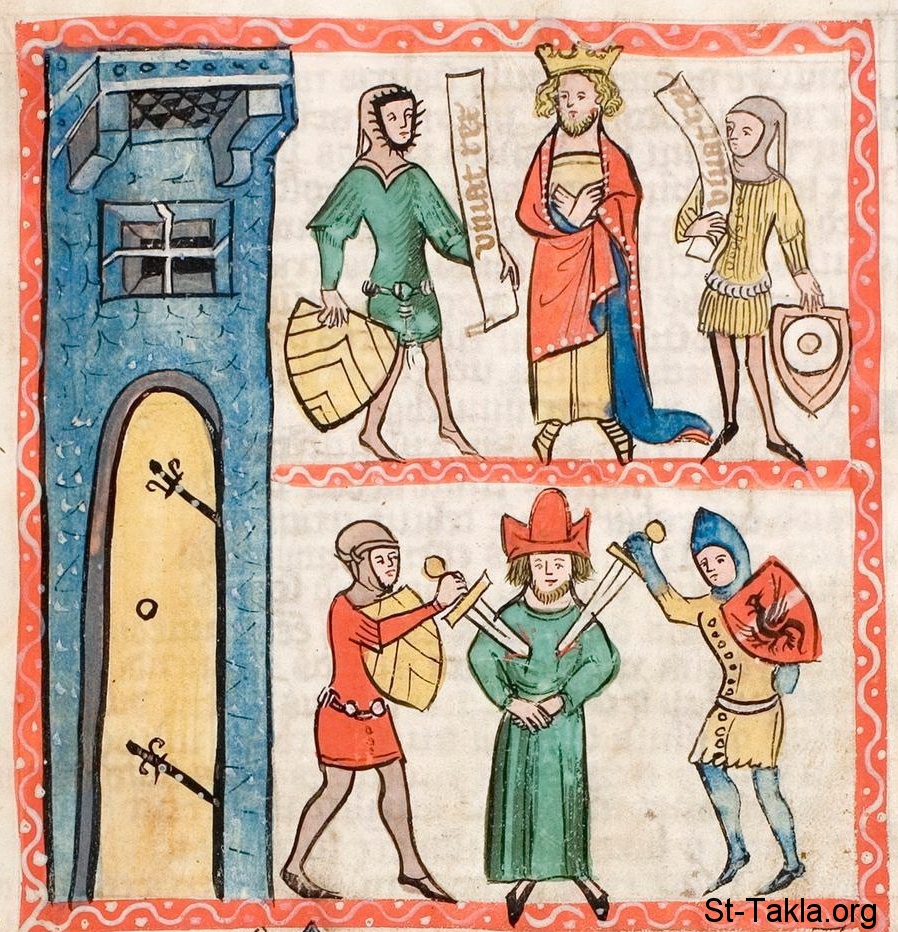 uiuat rex
uiuat rex
St-Takla.org